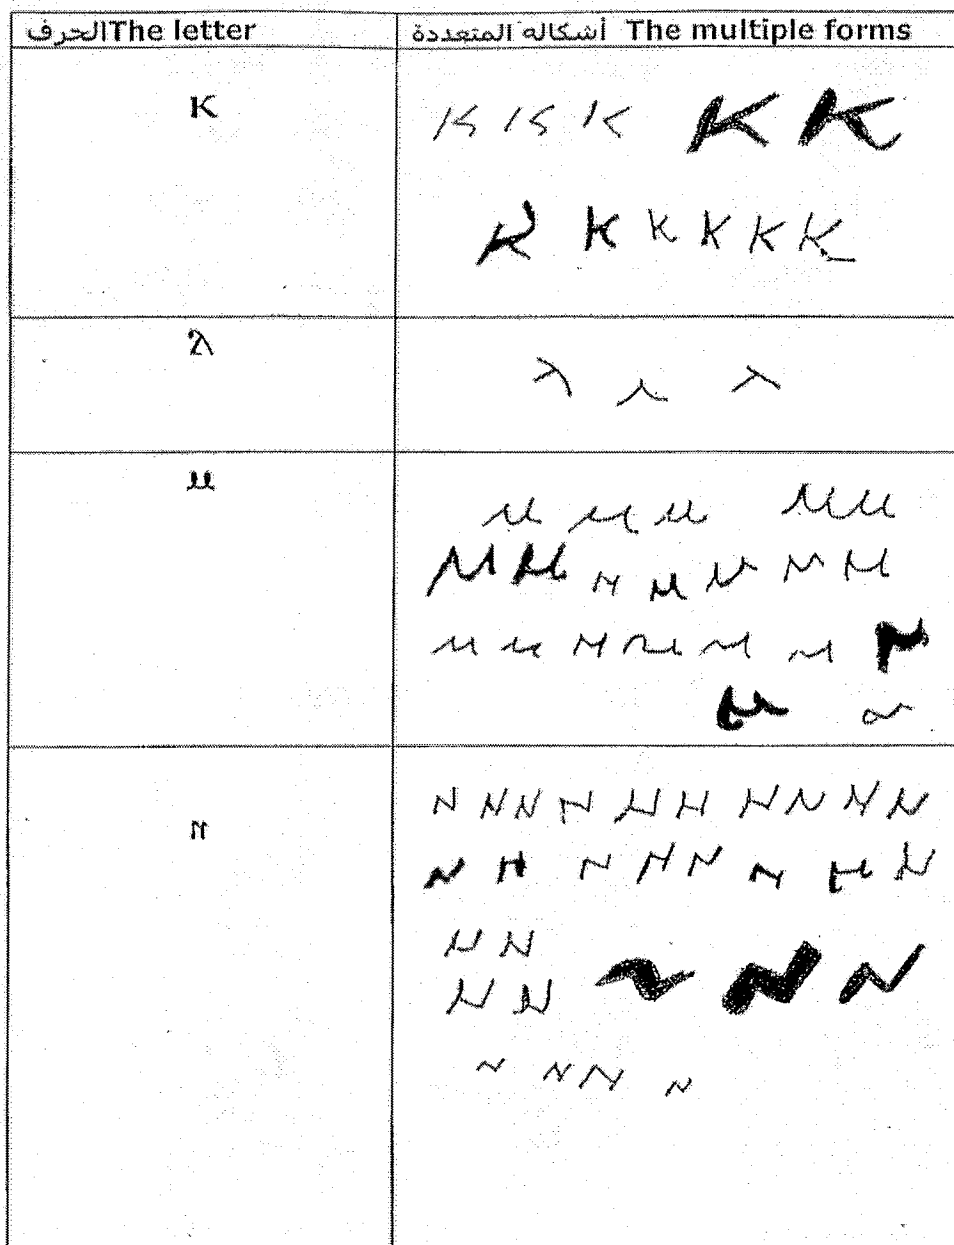 الحرف The letter
أشكاله المتعددة The multiple forms
ⲕ
ⲕ ⲕ ⲕ ⲕ ⲕ
ⲕ ⲕ ⲕ ⲕ ⲕ ⲕ
ⲗ
ⲗ ⲗ ⲗ
ⲙ
ⲙ ⲙ ⲙ ⲙ ⲙ
ⲙ ⲙ ⲙ ⲙ ⲙ ⲙ ⲙ
ⲙ ⲙ ⲙ ⲙ ⲙ ⲙ ⲙ
ⲙ ⲙ
ⲛ
ⲛ ⲛ ⲛ ⲛ ⲛ ⲛ ⲛ ⲛ ⲛ ⲛ
ⲛ ⲛ ⲛ ⲛ ⲛ ⲛ ⲛ ⲛ
ⲛ ⲛ
ⲛ ⲛ ⲛ ⲛ ⲛ
ⲛ ⲛ ⲛ ⲛ